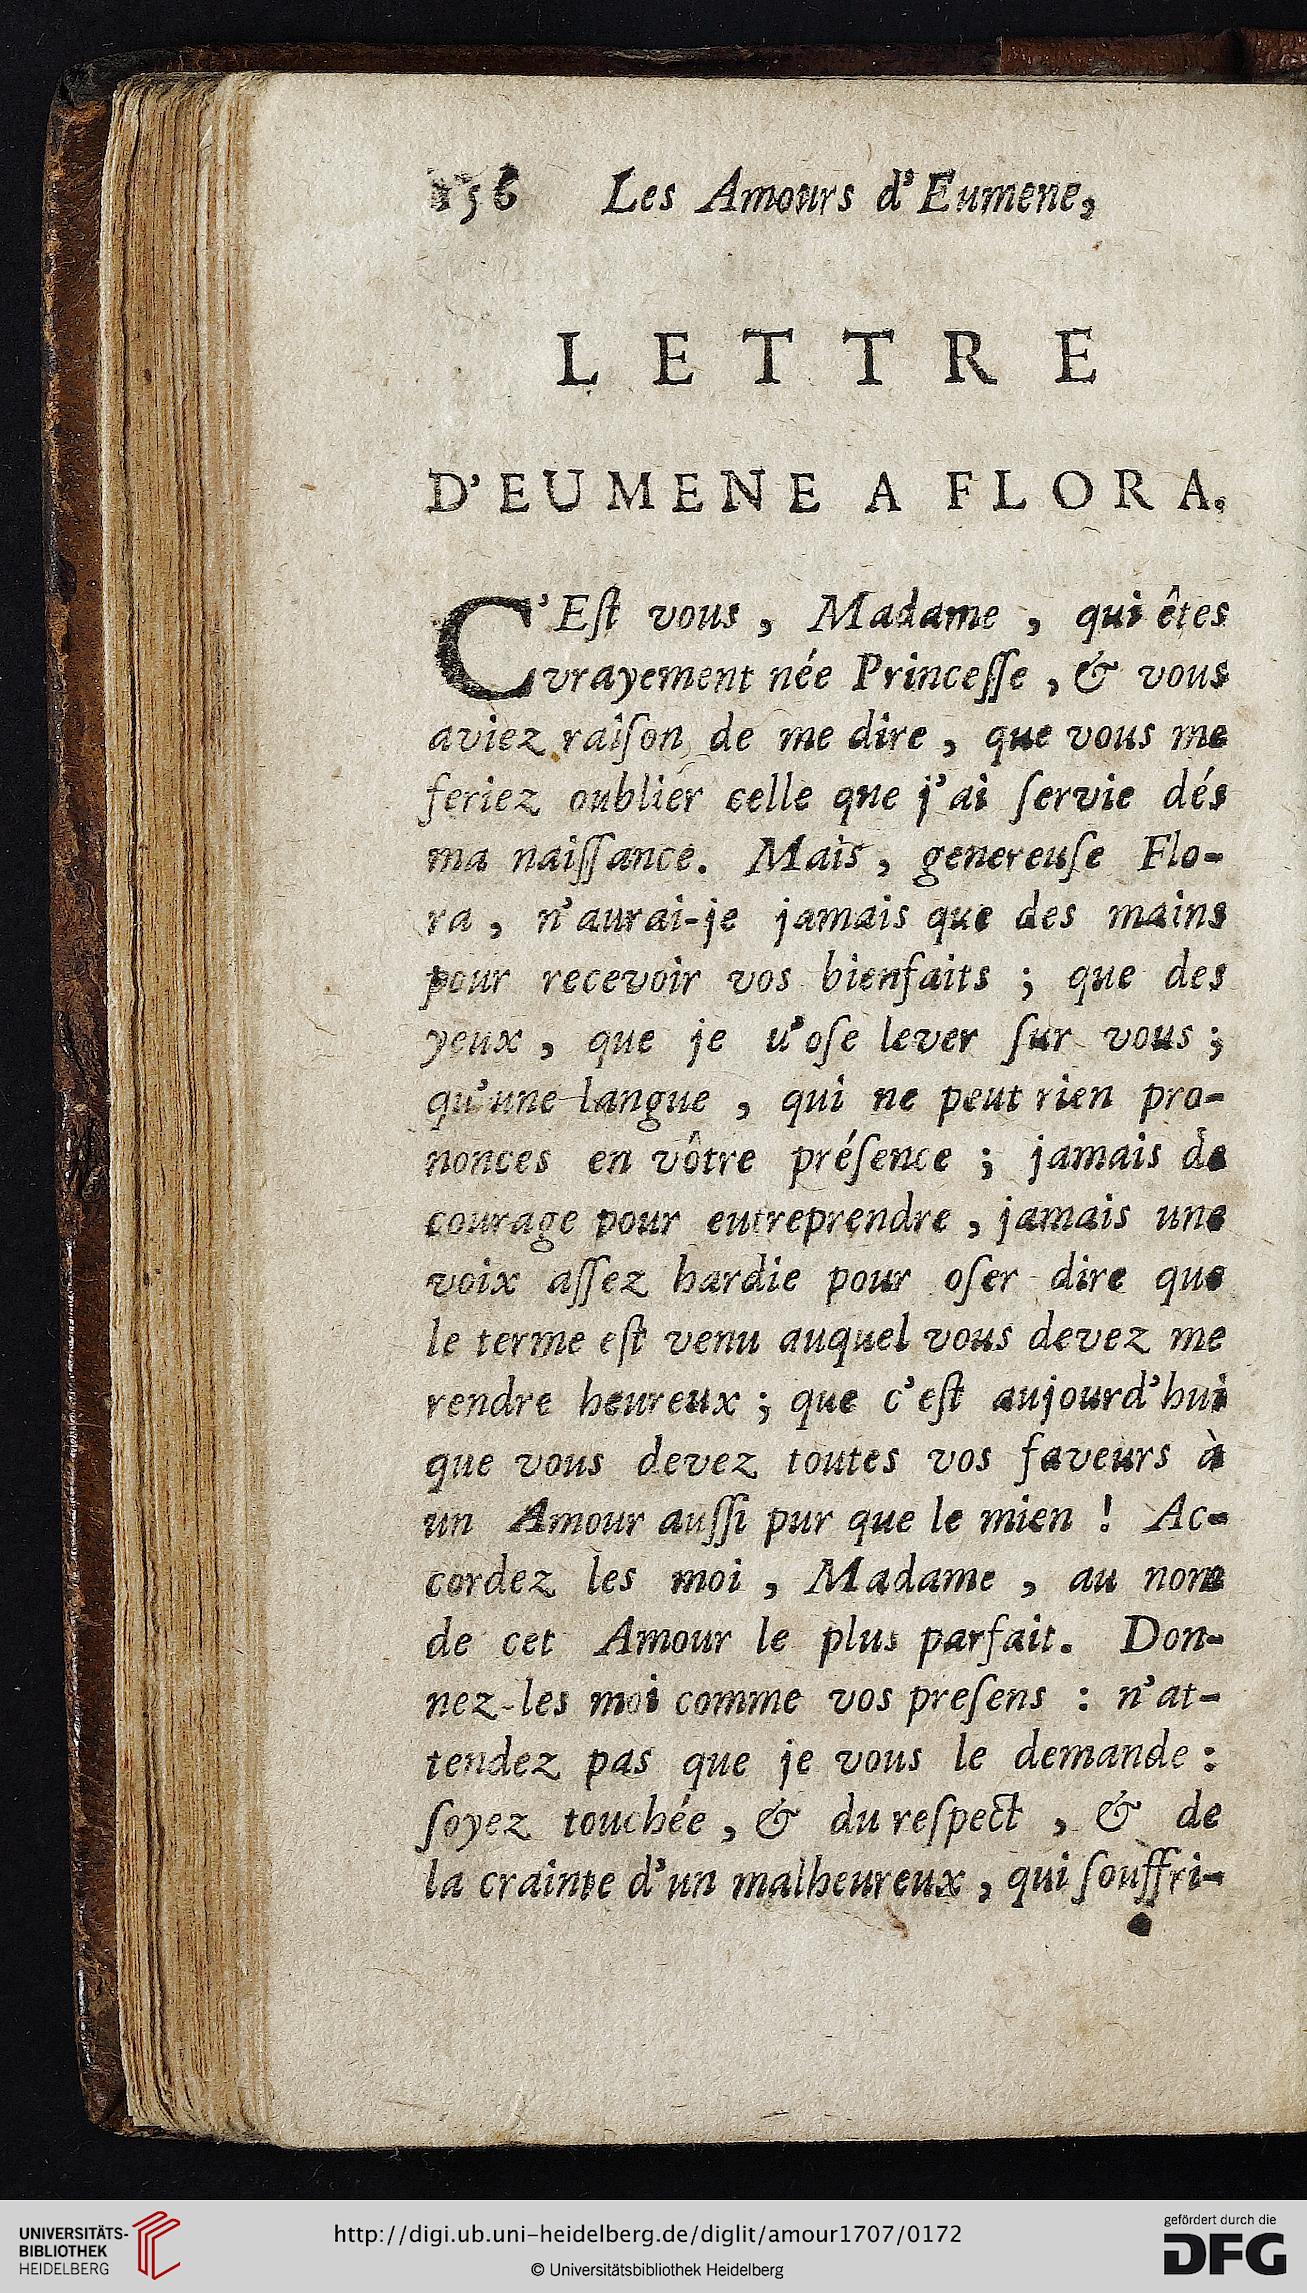 156 Les Amours d'Eumene,
LETTRE
D'EUMENE A FLORA.
C'Eſt vous, Madame, qui êtes
vrayement née Princeſſe, & vous
aviez raiſon de me dire, que vous me
feriez oublier celle que j'ai ſervie dés
ma naiſſance. Mais, genereuſe Flo-
ra, n'aurai-je jamais que des mains
pour recevoir vos bienfaits ; que des
yeux, que je u'oſe lever ſur vous ;
qu'une langue, qui ne peut rien pro-
nonces en vôtre préſence ; jamais de
courage pour eutreprendre, jamais une
voix aſſez hardie pour oſer dire que
le terme eſt venu auquel vous devez me
rendre heureux ; que c'eſt aujourd'hui
que vous devez toutes vos faveurs à
un Amour auſſi pur que le mien ! Ac-
cordez les moi, Madame, au nom
de cet Amour le plus parfait. Don-
nez-les moi comme vos preſens : n'at-
tendez pas que je vous le demande :
ſoyez touchée, & du reſpect, & de
la crainte d'un malheureux, qui ſouffri-
UNIVERSITÄTS-
BIBLIOTHEK
HEIDELBERG
http://digi.ub.uni-heidelberg.de/diglit/amour1707/0172
© Universitätsbibliothek Heidelberg
gefördert durch die
DFG